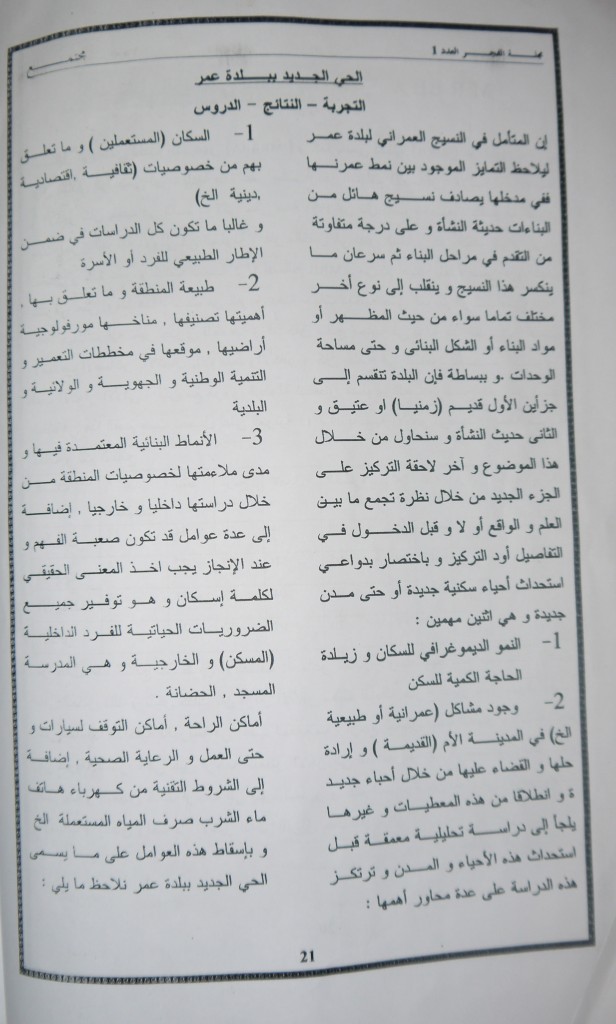 مجلة الفجر العدد 1
مجتمع
الحي الجديد ببلدة عمر
التجربة – النتائج – الدروس
إن المتأمل في النسيج العمراني لبلدة عمر
ليلاحظ التمايز الموجود بين نمط عمرنها
ففي مدخلها يصادف نسيج هائل من
البناءات حديثة النشأة و على درجة متفاوتة
من التقدم في مراحل البناء ثم سرعان ما
ينكسر هذا النسيج و ينقلب إلى نوع أخر
مختلف تماما سواء من حيث المظهر أو
مواد البناء أو الشكل البنائى و حتى مساحة
الوحدات .و ببساطة فإن البلدة تتقسم إلى
جزأين الأول قديم (زمنيا) او عتيق و
الثانى حديث النشأة و سنحاول من خلال
هذا الموضوع و آخر لاحقة التركيز على
الجزء الجديد من خلال نظرة تجمع ما بين
العلم و الواقع أو لا و قبل الدخول في
التفاصيل أود التركيز و باختصار بدواعي
استحداث أحياء سكنية جديدة أو حتى مدن
جديدة و هي اثنين مهمين :
1- النمو الديموغرافي للسكان و زيادة
الحاجة الكمية للسكن
2- وجود مشاكل (عمرانية أو طبيعية
الخ) في المدينة الأم (القديمة ) و إرادة
حلها و القضاء عليها من خلال أحياء جديد
ة و انطلاقا من هذه المعطيات و غيرها
يلجأ إلى دراسة تحليلية معمقة قبل
استحداث هذه الأحياء و المدن و ترتكز
هذه الدراسة على عدة محاور أهمها :
1- السكان (المستعملين ) و ما تعلق
بهم من خصوصيات (ثقافية ,اقتصادية
,دينية الخ)
و غالبا ما تكون كل الدراسات في ضمن
الإطار الطبيعي للفرد أو الأسرة
2- طبيعة المنطقة و ما تعلق بها ,
أهميتها تصنيفها , مناخها مورفولوجية
أراضيها , موقعها في مخططات التعمير و
التنمية الوطنية و الجهوية و الولائية و
البلدية
3- الأنماط البنائية المعتمدة فيها و
مدى ملاءمتها لخصوصيات المنطقة من
خلال دراستها داخليا و خارجيا , إضافة
إلى عدة عوامل قد تكون صعبة الفهم و
عند الإنجاز يجب اخذ المعنى الحقيقي
لكلمة إسكان و هو توفير جميع
الضروريات الحياتية للفرد الداخلية
(المسكن) و الخارجية و هي المدرسة
المسجد , الحضانة .
أماكن الراحة , أماكن التوقف لسيارات و
حتى العمل و الرعاية الصحية , إضافة
إلى الشروط التقنية من كهرباء هاتف
ماء الشرب صرف المياه المستعملة الخ
و بإسقاط هذه العوامل على ما يسمى
الحي الجديد ببلدة عمر نلاحظ ما يلي :
21